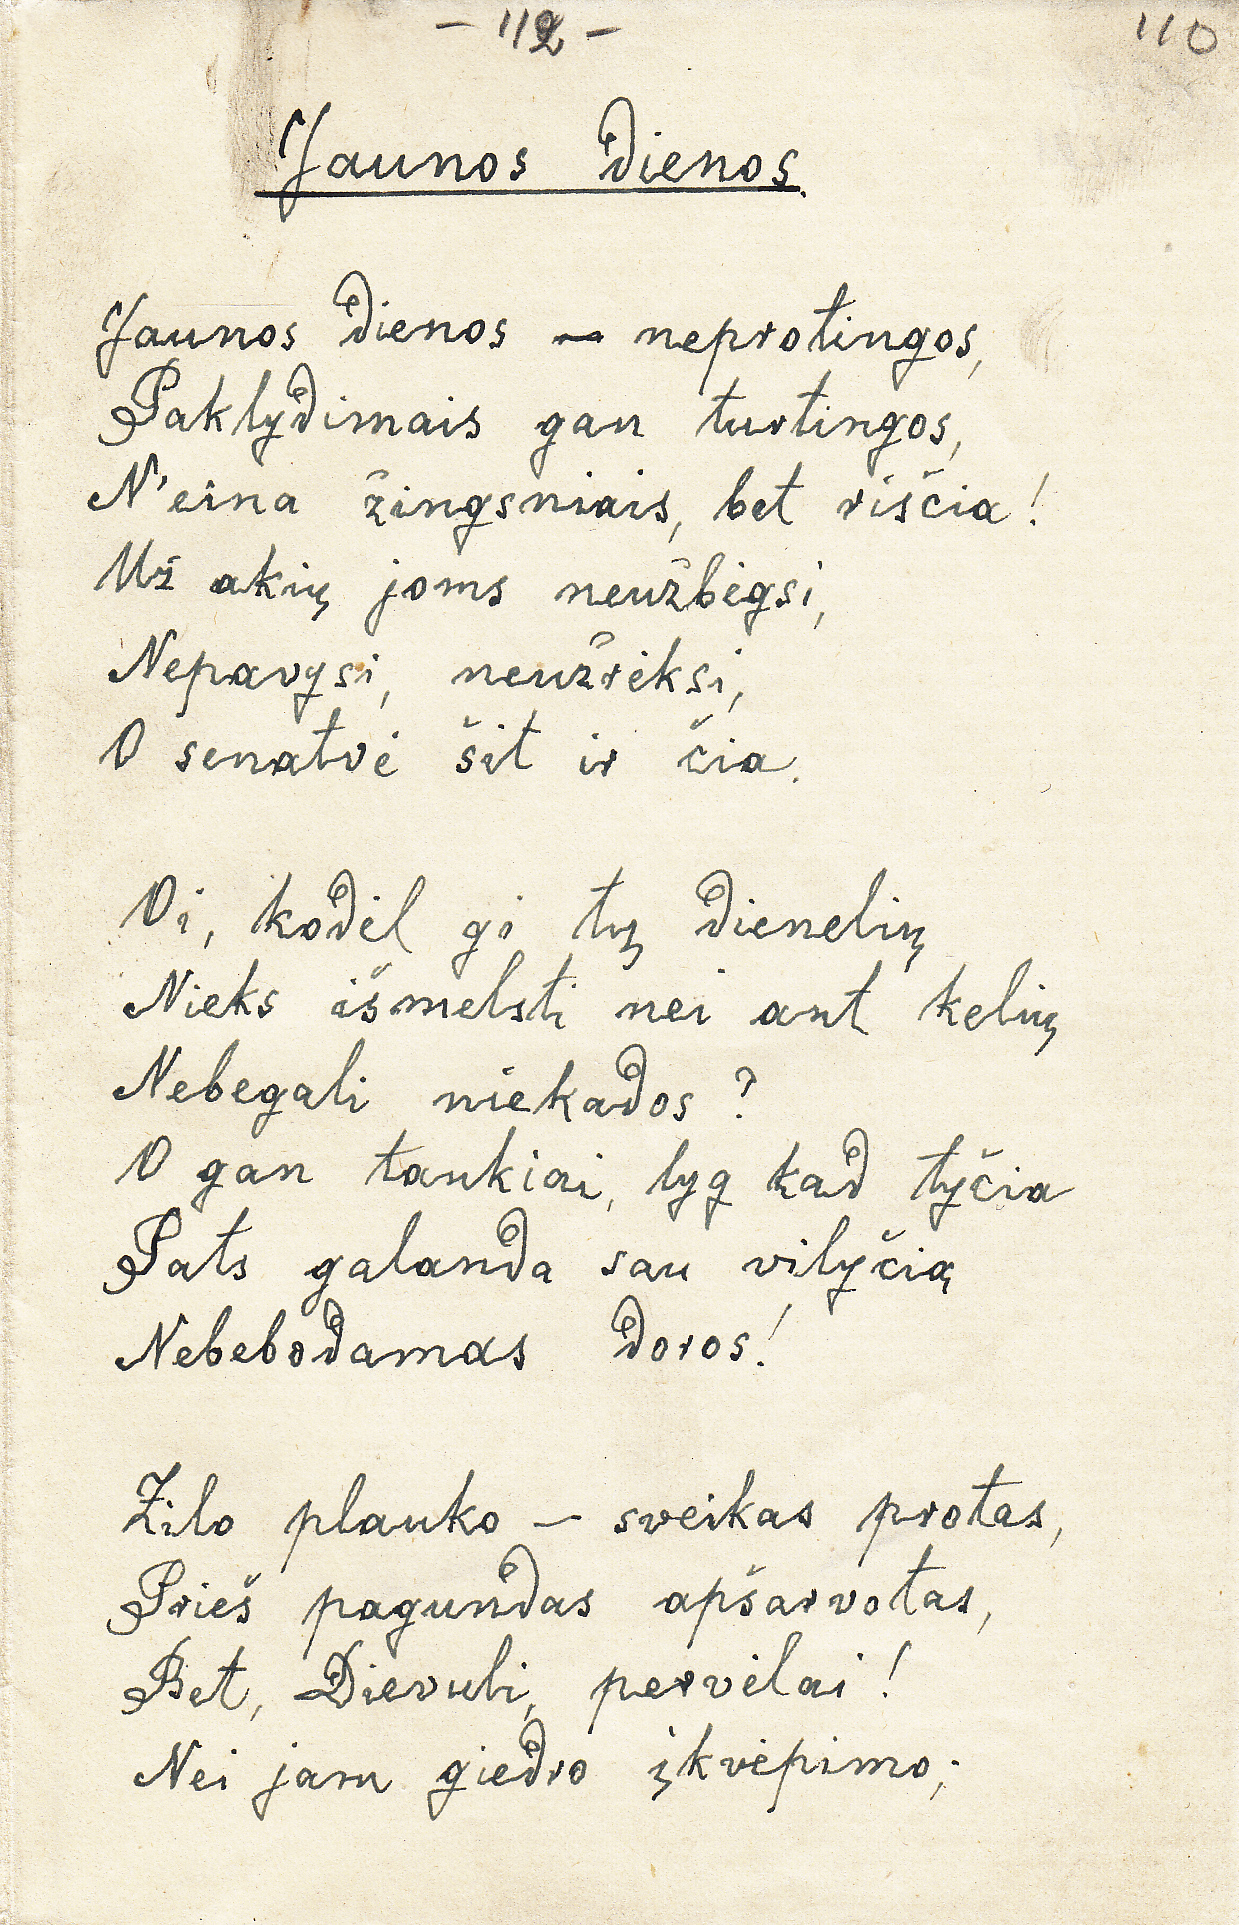 - 112 -
110
Jaunos dienos.
Jaunos dienos — neprotingos,
Paklydimais gan turtingos,
N'eina žingsniais, bet riščia!
Už akių joms neužbėgsi,
Nepavysi, neužrėksi,
O senatvė šit ir čia.
Oi, kodėl gi tų dienelių
Nieks išmelsti nei ant kelių
Nebegali niekados?
O gan tankiai, lyg kad tyčia
Pats galanda sau vilyčią
Nebebodamas doros!
Žilo plauko — sveikas protas,
Prieš pagundas apšarvotas,
Bet, Dievuli, pervėlai!
Nei jam giedro įkvėpimo;